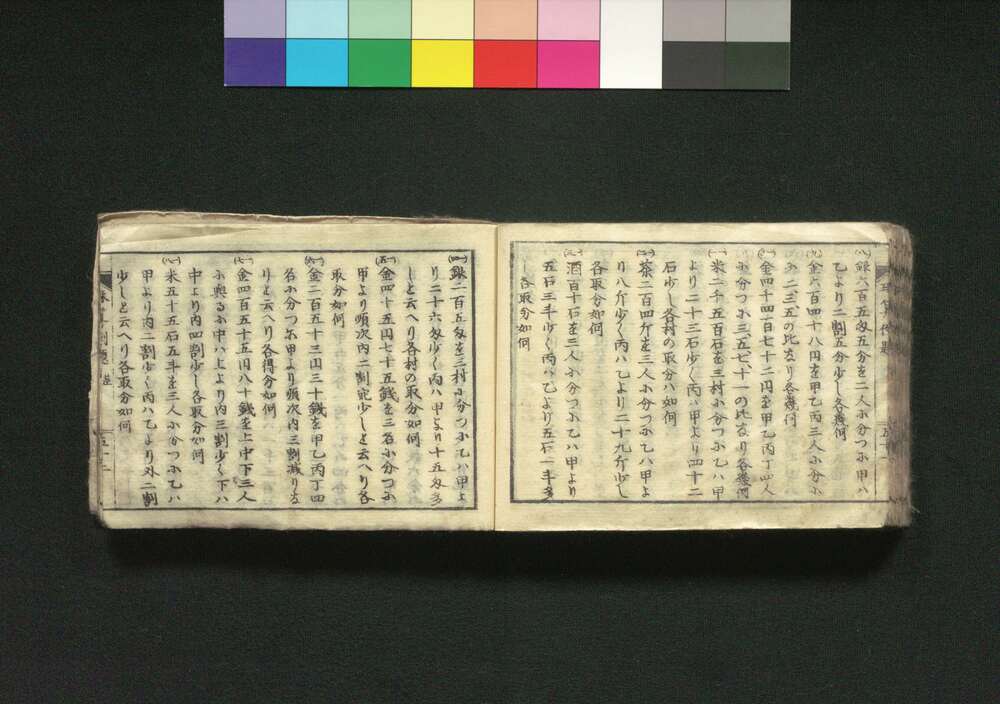 (八)銀六百五匁五分を二人小分つ小甲ハ
乙より二割五分少し各幾何
(九)金六百四十八円を甲乙丙三人小分小
二三五の比なり各幾何
(十)金四千四百七十二円を甲乙丙丁四人
小分つ小三、五七十一の比なり各幾何
(一)米二千五百石を三村小分つ小乙ハ甲
より二十三石少く丙ハ甲より四十二
石少し各村の取分ハ如何
茶二百四斤を三人小分つ小乙ハ甲よ
り八斤少く丙ハ乙より二十九斤少し
各取分如何
酒百十石を三人小分つ小乙ハ甲より
五石三斗少く丙ハ乙より五石一斗多
し各取分如何
(四)銀二百五匁を三村小分つ小乙ハ甲よ
り二十六匁少く丙ハ甲より十五匁多
しと云へり各村の取分如何
(五)金四十五円七十五銭を三名小分つ小
甲より順次内二割宛少しと云へり各
取分如何
(六)金二百五十三円三十銭を甲乙丙丁四
名小分つ小甲より順次内三割減りる
りと云へり各得分如何
(七)金四百五十五円八十銭を上中下三人
小與る小中ハ上より内三割少く下ハ
中より内四割少し各取分如何
(八)米五十五石五斗を三人小分つ小乙ハ
甲より内二割少く丙ハ乙より外二割
少しと云へり各取分如何